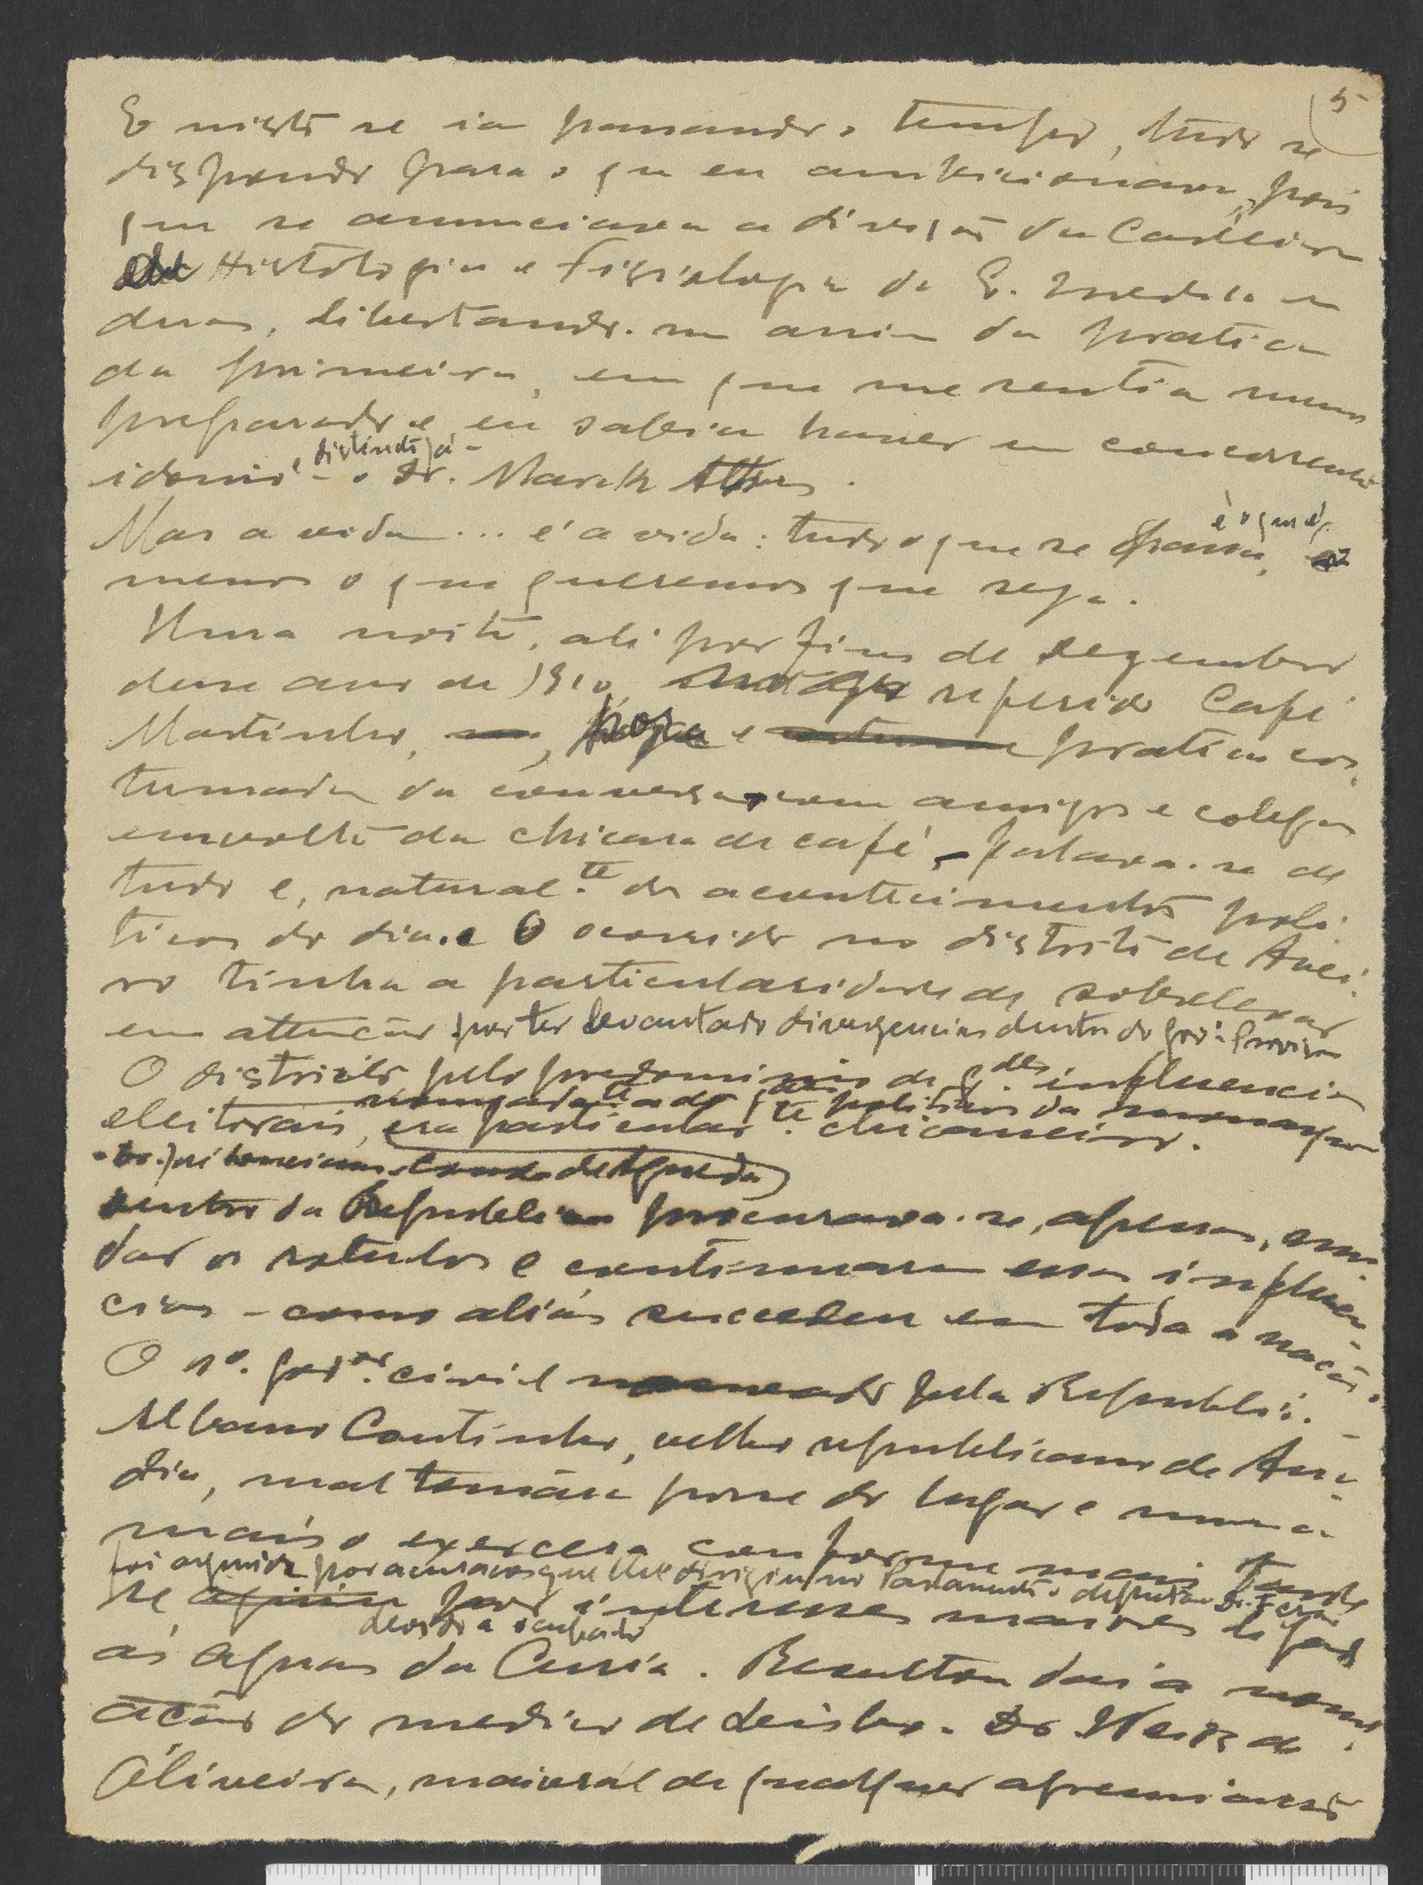 5
E nisto se ia passando o tempo, tudo se
dispondo para o que eu ambicionava, pois
que se anunciava a divisão da Cadeira
Histologia e Fisiologia da E. Medica em
duas, libertando-me assim da pratica
da primeira, em que me sentia menos
preparado e eu sabia haver um concorrente
idoneo, distinto já - o Dr. Marck Athias.
Mas a vida ... é a vida: tudo o que se passa, é o que é,
menos o que queremos que seja.
Uma noite, ali por fins de dezembro
desse ano de 1910, referido Café
Martinho, e pratica cos-
tumada da conversa com amigos e colegas
em volta da chicara de café, falava-se de
tudo e, natural.te dos acontecimentos poli-
ticos do dia. O ocorrido no distrito de Avei-
ro tinha a particularidade de sobrelevar
em attenção por ter levantado divergencias dentro do gov.º Provisor.
O districto, pelo predominio de g.des influencias
eleitoraes, era particular.te chicaneiro.
politicos da monarquia
dentro da Republica procurava-se, apenas, mu-
dar os rotulos e continuarem essas influen-
cias - como aliás succedeu em toda a nação.
O 1º. gov.or civil pela Republica.
Albano Coutinho, velho republicano de Ana-
dia, mal tomára posse do lugar e nunca
mais o exercera conforme mais tarde
foi arguido por acusações que lhe dirigiu no Parlamento o deputado
se interesses maiores ligados
devido a
às aguas da Curia. Resultou daí a nome-
ação do medico de Leislas. Dr. Weiss de
Oliveira, maioral de qualquer agremiação